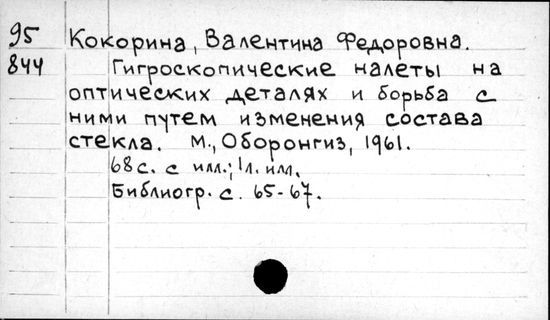 95 Кокорина, Валентина Федоровна.
844 Гигроскопические налеты на
оптических деталях и борьба с
ними путем изменения состава
стекла. М., Оборонгиз, 1961.
68 с. с илл.; 1 л. илл.
Библиогр. с. 65-67.